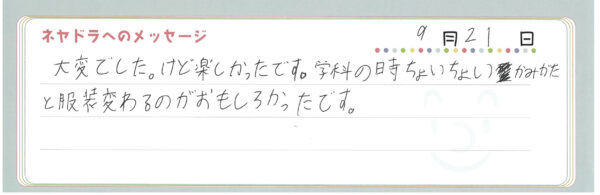 ネヤドラへのメッセージ
9月21日
大変でした。けど楽しかったです。学科の時ちょいちょいかみがた
と服装変わるのがおもしろかったです。